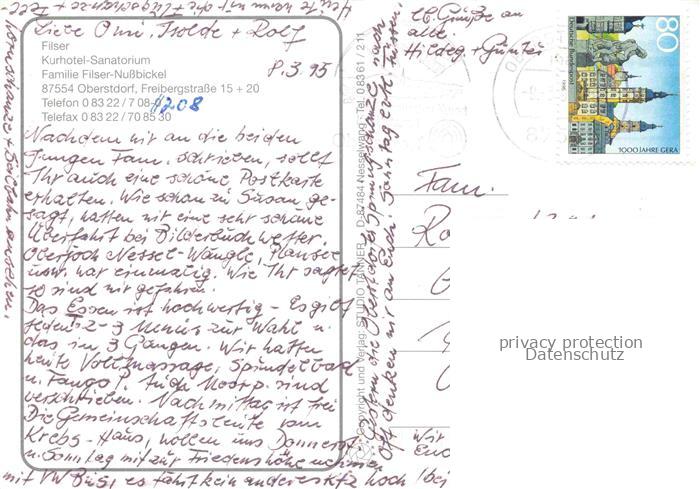 Liebe Omi, Isolde + Rolf
Filser
Kurhotel-Sanatorium
Familie Filser-Nußbickel
8.3.95
87554 Oberstdorf, Freibergstraße 15 + 20
Telefon 0 83 22 / 7 08-0
1208
Telefax 0 83 22 / 70 85 30
Nachdem wir an die beiden
Jungen Fam. schrieben, sollt
Ihr auch eine schöne Postkarte
erhalten. Wie schon zu Susan ge-
sagt, hatten wir eine sehr schöne
Überfahrt bei Bilderbuchwetter.
Oberjoch Nessel-Wängle, Plansee
usw. war einmalig. Wie Ihr sagtet
so sind wir gefahren.
Das Essen ist hochwertig - Es gibt
jeden 2-3 Menüs zur Wahl u.
das in 3 Gängen. Wir hatten
heute Vollmassage, Sprudelbad
u. Fango! Auch Moorp. sind
verschrieben. Nachmittag ist frei
Die Gemeinschaftsleute vom
Krebs-Haus, wollen uns Donnerst
u. Sonntag mit zur Friedenshöhe nehmen
mit VW Bus, es fährt kein anderes Kfz hoch
ansehen.
Copyright und Verlag: STUDIO TANNER D-87484 Nesselwang Tel. 08361 / 211
Gestern die Oberstdorfer Sprungschanze nach
Oft denken wir an Euch! Sonntag
Lb. Grüße an
alle.
Hildeg + Günter
80
Deutsche Bundespost
1000 JAHRE GERA
Fam.
Wir
privacy protection
Datenschutz